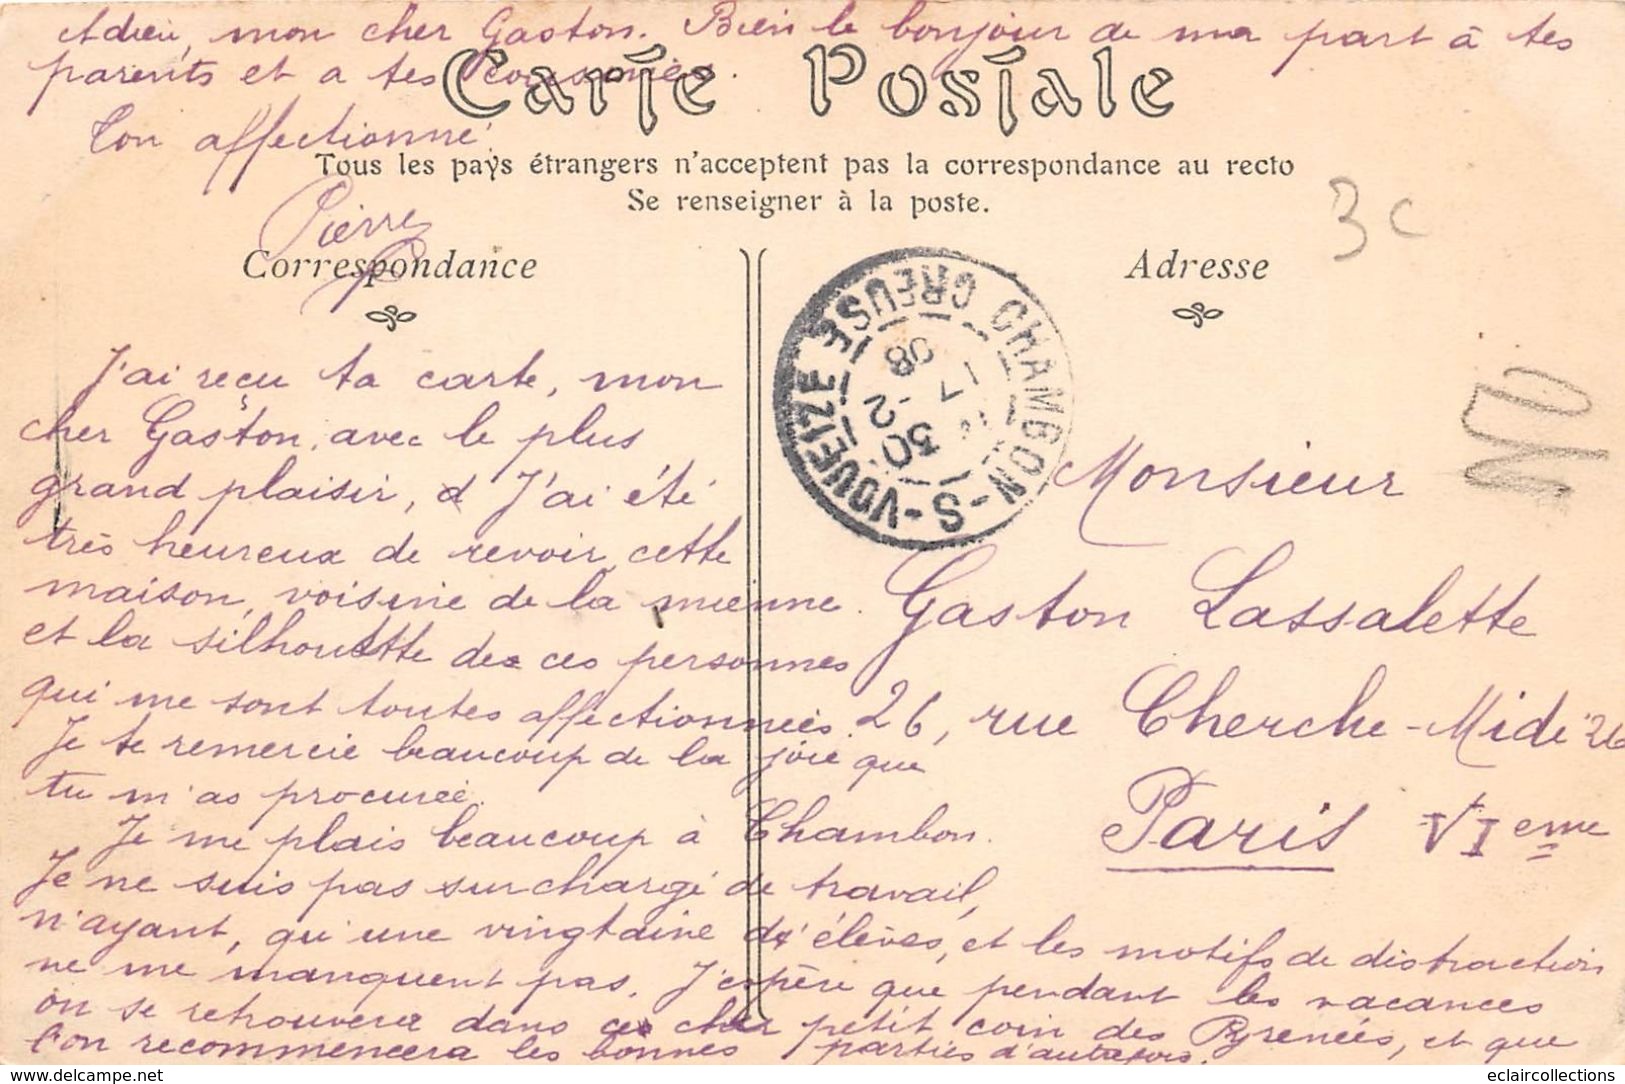 Adieu, mon cher Gaston. Bien le bonjour de ma part à tes
parents et a tes cousines.
Ton affectionné
Pierre
Carte Postale
Tous les pays étrangers n'acceptent pas la correspondance au recto
Se renseigner à la poste.
Correspondance
Adresse
3c
CHAMBON-S-VOUEIZE
CREUSE
30
08
J'ai reçu ta carte, mon
cher Gaston, avec le plus
grand plaisir, J'ai été
très heureux de revoir cette
maison, voisine de la mienne.
et la silhouette de ces personnes
qui me sont toutes affectionnées.
Je te remercie beaucoup de la joie que
tu m'as procurée.
Je me plais beaucoup à Chambon.
Je ne suis pas surchargé de travail,
n'ayant, qu'une vingtaine d'élèves, et les motifs de distraction
ne me manquent pas. J'espère que pendant les vacances
on se retrouvera dans ce cher petit coin des Pyrénées, et que
l'on recommencera les bonnes parties d'autrefois.
Monsieur
Gaston Lassalette
26, rue Cherche-Midi 26
Paris VIeme
delcampe.net
eclaircollections